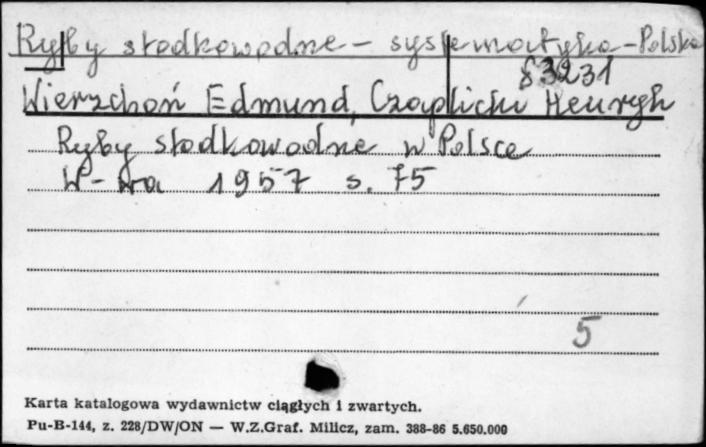 Ryby słodkowodne - systematyka - Polska
83231
Wierzchoń Edmund, Czaplicki Henryk
Ryby słodkowodne w Polsce
W-wa 1957 s. 75
5
Karta katalogowa wydawnictw ciągłych i zwartych.
Pu-B-144, z. 228/DW/ON — W.Z.Graf. Milicz, zam. 388-86 5.650.000